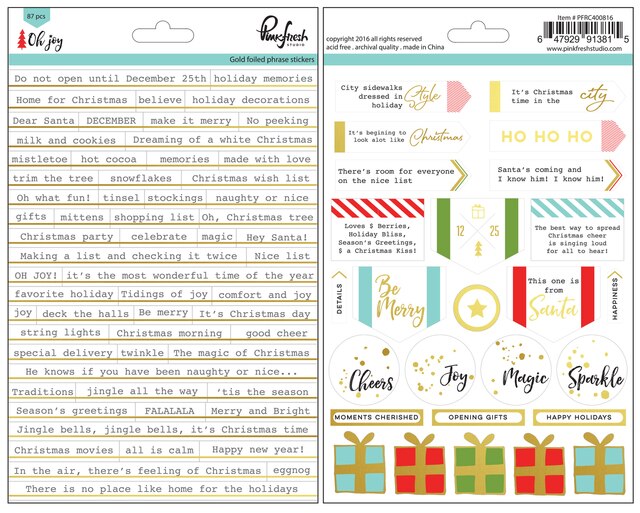 87 pcs
Oh joy
Pinkfresh
STUDIO
Gold foiled phrase stickers
Do not open until December 25th holiday memories
Home for Christmas believe holiday decorations
Dear Santa DECEMBER make it merry No peeking
milk and cookies Dreaming of a white Christmas
mistletoe hot cocoa memories made with love
trim the tree snowflakes Christmas wish list
Oh what fun! tinsel stockings naughty or nice
gifts mittens shopping list Oh, Christmas tree
Christmas party celebrate magic Hey Santa!
Making a list and checking it twice Nice list
OH JOY! it's the most wonderful time of the year
favorite holiday Tidings of joy comfort and joy
joy deck the halls Be merry It's Christmas day
string lights Christmas morning good cheer
special delivery twinkle The magic of Christmas
He knows if you have been naughty or nice...
Traditions jingle all the way 'tis the season
Season's greetings FALALALA Merry and Bright
Jingle bells, jingle bells, it's Christmas time
Christmas movies all is calm Happy new year!
In the air, there's feeling of Christmas eggnog
There is no place like home for the holidays
copyright 2016 all rights reserved
acid free . archival quality . made in China
Item # PFRC400816
6 47929 91381 5
www.pinkfreshstudio.com
City sidewalks
dressed in
holiday
Style
It's Christmas
time in the
city
It's begining to
look alot like
Christmas
HO HO HO
There's room for everyone
on the nice list
Santa's coming and
I know him! I know him!
Loves $ Berries,
Holiday Bliss,
Season's Greetings,
& a Christmas Kiss!
12 25
The best way to spread
Christmas cheer
is singing loud
for all to hear!
DETAILS
Be
Merry
This one is
from
Santa
HAPPINESS
Cheers
Joy
Magic
Sparkle
MOMENTS CHERISHED
OPENING GIFTS
HAPPY HOLIDAYS